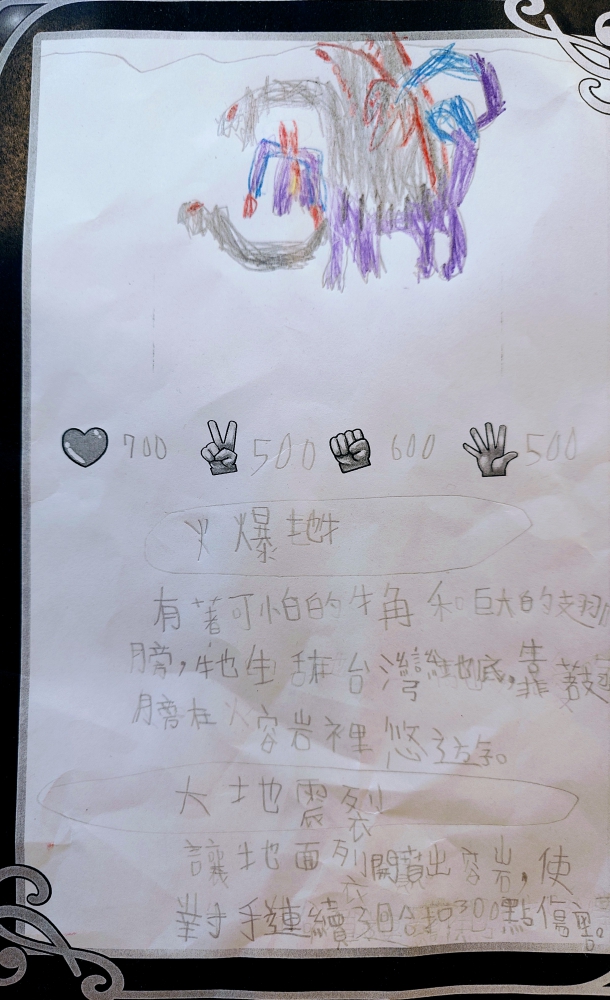 700 500 600 500
火爆地牛
有著可怕的牛角和巨大的翅
膀，牠生活在台灣地底，靠著翅
膀在火容岩裡悠游。
大地震裂
讓地面裂開噴出容岩，使
對手連續3回合扣300點傷害。